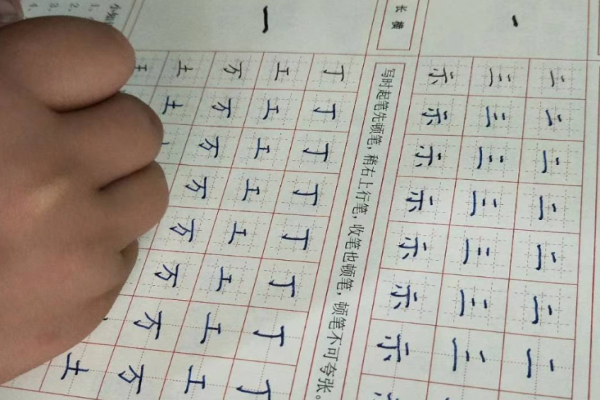 一
二二二二二二二
三三三三三三三
示示示示示示示
长横
写时起笔先顿笔，稍右上行笔，收笔也顿笔，顿笔不可夸张。
一
丁丁丁丁丁丁丁丁
工工工工工工工工
万万万万万万万万
土土土